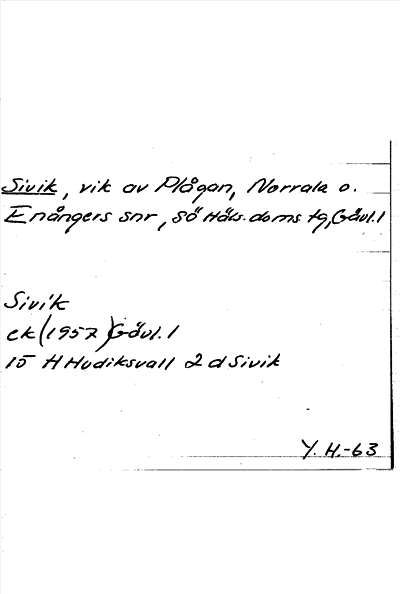 Sivik, vik av Plågan, Norrala o.
Enångers snr, Sö Häls. doms tg, Gävl. l
Sivik
ek (1957) Gävl. l
15 H Hudiksvall 2 d Sivik
Y. H.-63